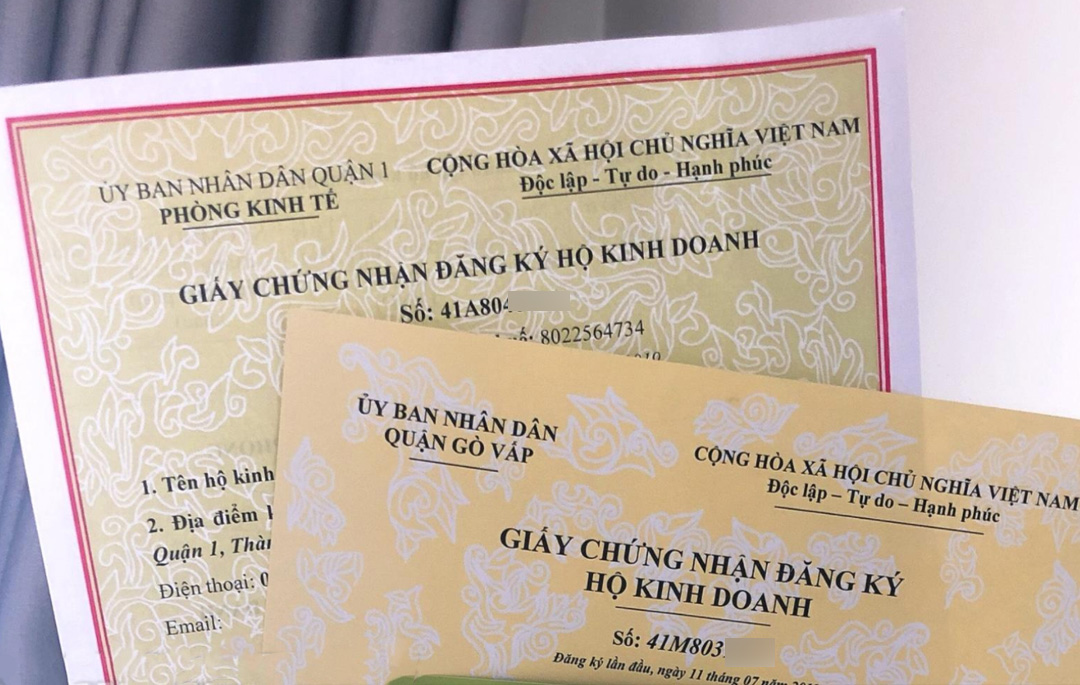 ỦY BAN NHÂN DÂN QUẬN 1
PHÒNG KINH TẾ
CỘNG HÒA XÃ HỘI CHỦ NGHĨA VIỆT NAM
Độc lập - Tự do - Hạnh phúc
GIẤY CHỨNG NHẬN ĐĂNG KÝ HỘ KINH DOANH
Số: 41A804
8022564734
1. Tên hộ kinh
2. Địa điểm
Quận 1, Thàn
Điện thoại: 0
Email:
ỦY BAN NHÂN DÂN
QUẬN GÒ VẤP
CỘNG HÒA XÃ HỘI CHỦ NGHĨA VIỆT NAM
Độc lập – Tự do – Hạnh phúc
GIẤY CHỨNG NHẬN ĐĂNG KÝ
HỘ KINH DOANH
Số: 41M803
Đăng ký lần đầu, ngày 11 tháng 07 năm